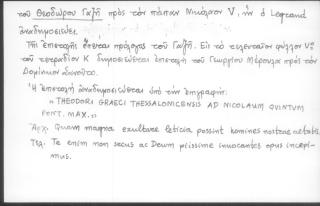 τοῦ Θεοδώρου Γαζῆ πρὸς τὸν πάπαν Νικόλαον V, ἣν ὁ Legrand
ἀναδημοσιεύει.
Τῆς ἐπιστολῆς ἕπεται πρόλογος τοῦ Γαζῆ. Εἰς τὸ τελευταῖον φύλλον Vº
τοῦ τετραδίου Κ δημοσιεύεται ἐπιστολὴ τοῦ Γεωργίου Μέρουλα πρὸς τὸν
Δομίνικον
Ἡ ἐπιστολὴ ἀναδημοσιεύεται ὑπὸ τὴν ἐπιγραφήν:
"THEODORI GRAECI THESSALONICENSIS AD NICOLAUM QUINTUM
PONT. MAX."
Ἀρχ. Quam magna exultare leticia possint homines nostrae aetatis
Τέλ. Te enim non secus ac Deum piissime invocantes opus incepi-
mus.